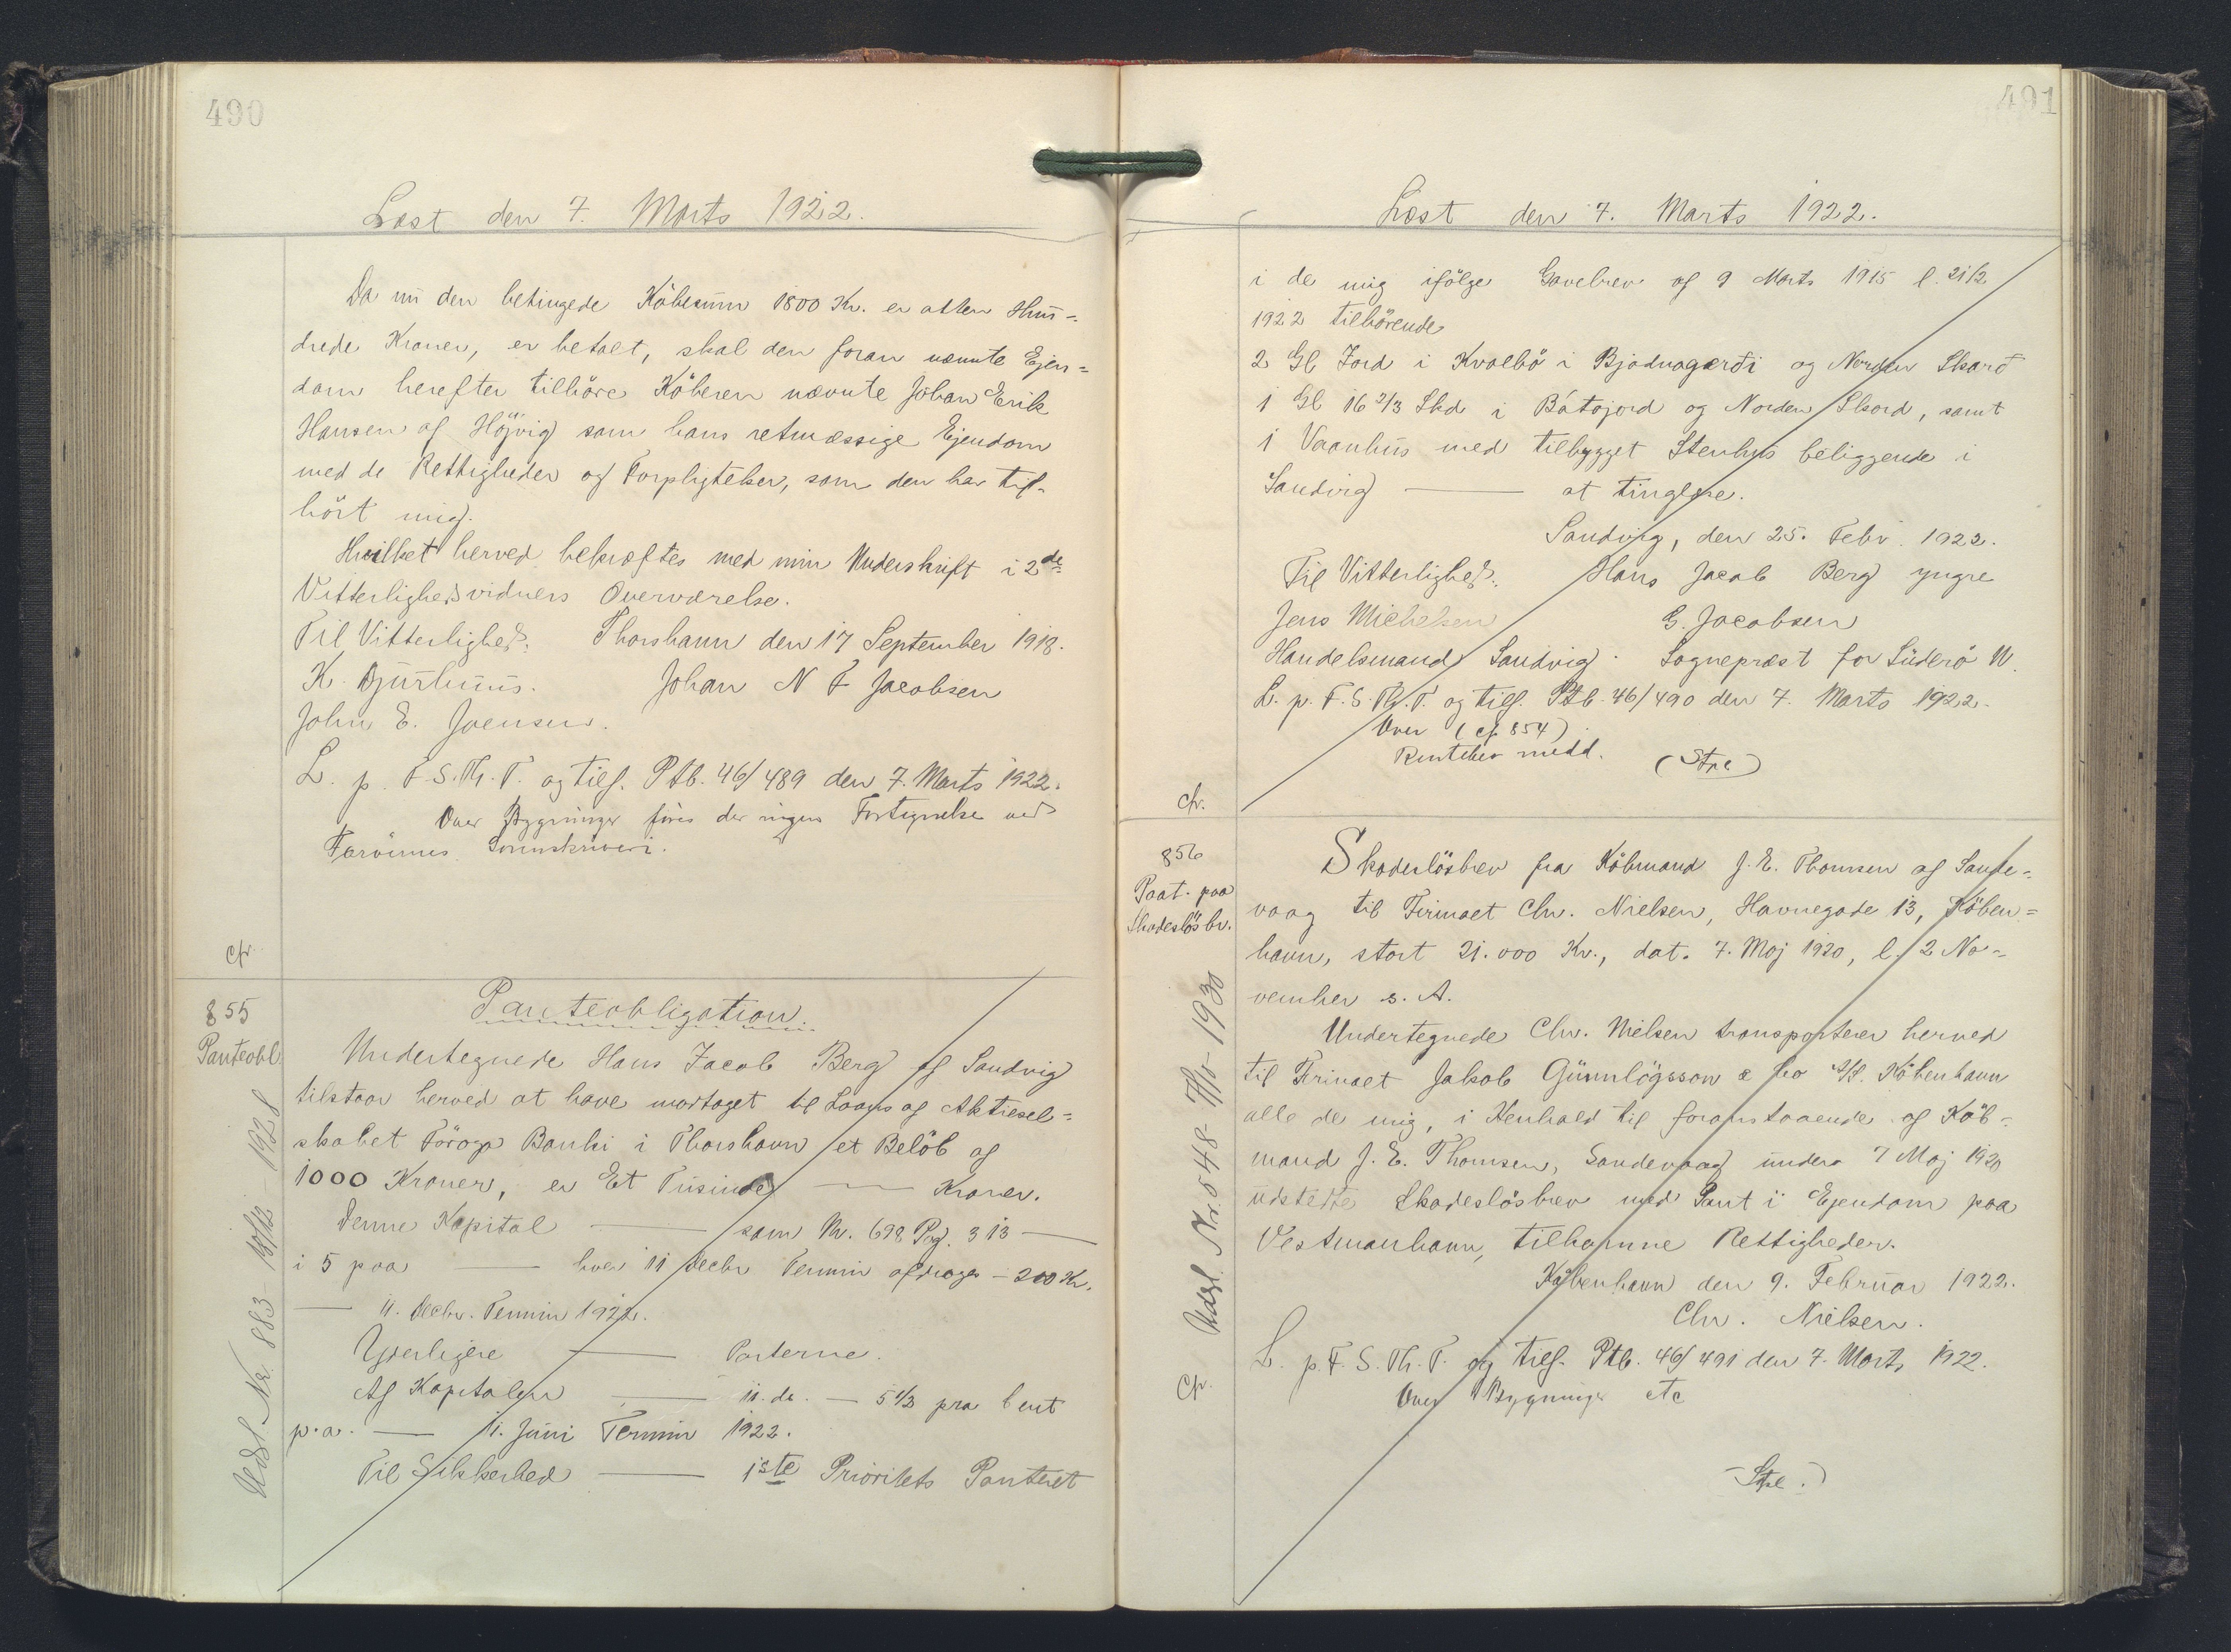 490
Læst den 7. Marts 1922.
Da nu den betingede Købesum 1800 Kr. er atten Hun-
drede Kroner, er betalt, skal den foran nævnte Ejen-
dom herefter tilhöre Köberen nævnte Johan Erik
Hansen af Höjvig som hans retmæssige Ejendom
med de Rettigheder og Forpligtelser, som den har til-
hört mig.
Hvilket herved bekræftes med min Underskrift i 2de
Vitterlighedsvidners Overværelse.
Til Vitterlighed. Thorshavn den 17 September 1918.
K. Djurhuus. Johan N F Jacobsen
John E. Joensen.
L. p. F. S. Th. T. og tilf. Ptb. 46/489 den 7. Marts 1922.
Over Bygninger föres der ingen Fortegnelse ved
Færöernes Sorenskriveri.
cfr.
855
Panteobl
Udsl. Nr. 883 - 18/12 - 1928
Panteobligation.
Undertegnede Hans Jacob Berg af Sandvig
tilstaar herved at have modtaget til Laans af Aktiesel-
skabet Föroya Banki i Thorshavn et Belöb af
1000 Kroner, er Et Tusinde — Kroner.
Denne Kapital — som Nr. 698 Pag. 313 —
i 5 paa — hver 11 Decbr Termin afdrages — 200 Kr.
— 11. Decbr. Termin 1922.
Yderligere — Parterne.
Af Kapitalen — 11. ds. — 5 1/2 pro Cent
p.a. — 11. Juni Termin 1922.
Til Sikkerhed — 1ste Prioritets Panteret
491
Læst den 7. Marts 1922.
i de mig ifölge Gavebrev af 9 Marts 1915 l. 21/2
1922 tilhörende
2 Gl Jord i Kvalbö i Bjadnagærdi og Norden Skard
1 Gl 16 2/3 Skd i Bátajord og Norden Skord, samt
1 Vaanhus med tilbygget Stenhus beliggende i
Sandvig — at tinglæse.
Sandvig, den 25. Febr. 1922.
Til Vitterlighed. Hans Jacob Berg yngre
Jens Michelsen G. Jacobsen
Handelsmand, Sandvig. Sognepræst for Süderö N.
L. p. F. S. Th. T. og tilf. Ptb. 46/490 den 7. Marts 1922.
Over (cf. 854)
Rentebev medd. (Stpl)
cfr.
856
Paat. paa
Skadeslösbr.
Udsl. Nr. 548 - 7/5 - 1930
Skadeslösbrev fra Köbmand J. E. Thomsen af Sande-
vaag til Firmaet Chr. Nielsen, Havnegade 13, Köben-
havn, stort 21.000 Kr., dat. 7. Maj 1920, l. 2 No-
vember s. A.
Undertegnede Chr. Nielsen transporterer herved
til Firmaet Jakob Günnlögsson & Co A/S. Köbenhavn
alle de mig, i Henhold til foranstaaende af Köb-
mand J. E. Thomsen, Sandevaag under 7 Maj 1920
udstedte Skadeslösbrev med Pant i Ejendom paa
Vestmanhavn, tilkomne Rettigheder.
Köbenhavn den 9. Februar 1922.
Chr. Nielsen.
L. p. F. S. Th. T. og tilf. Ptb. 46/491 den 7. Marts 1922.
Over Bygninger etc
Cfr.
Stpl.